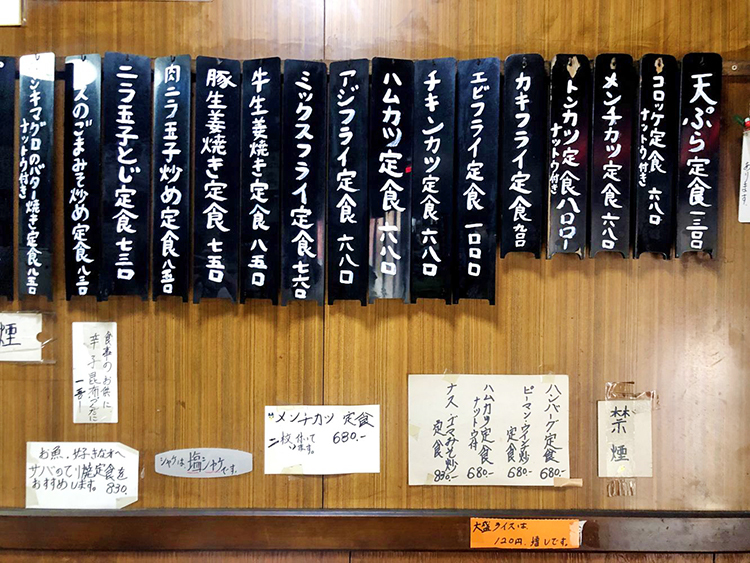 天ぷら定食 一三〇
コロッケ定食 六八〇
ナットウ付き
メンチカツ定食 六八〇
トンカツ定食 八八〇
ナットウ付き
カキフライ定食 九三〇
エビフライ定食 一〇〇〇
チキンカツ定食 六八〇
ハムカツ定食 六八〇
アジフライ定食 六八〇
ミックスフライ定食 七六〇
牛生姜焼き定食 八五〇
豚生姜焼き定食 七五〇
肉ニラ玉子炒め定食 八五〇
ニラ玉子とじ定食 七三〇
スのごまみそ炒め定食 八三〇
シキマグロのバター焼き定食 八三〇
ナットウ付き
あります
煙
食事のお供に
辛子昆布つくだに
お魚、好きな方へ
サバのてり焼定食を
おすすめします。 830.
シャケは塩シャケです。
"メンチカツ 定食
二枚 付いて 680.-
います。
ハンバーグ定食 680.-
ピーマン・ウインナ炒
定食 680.-
ハムカツ定食
ナットウ付 680.-
ナス・ゴマみそ炒
定食 830.-
禁煙
大盛ライスは
120円、増しです。